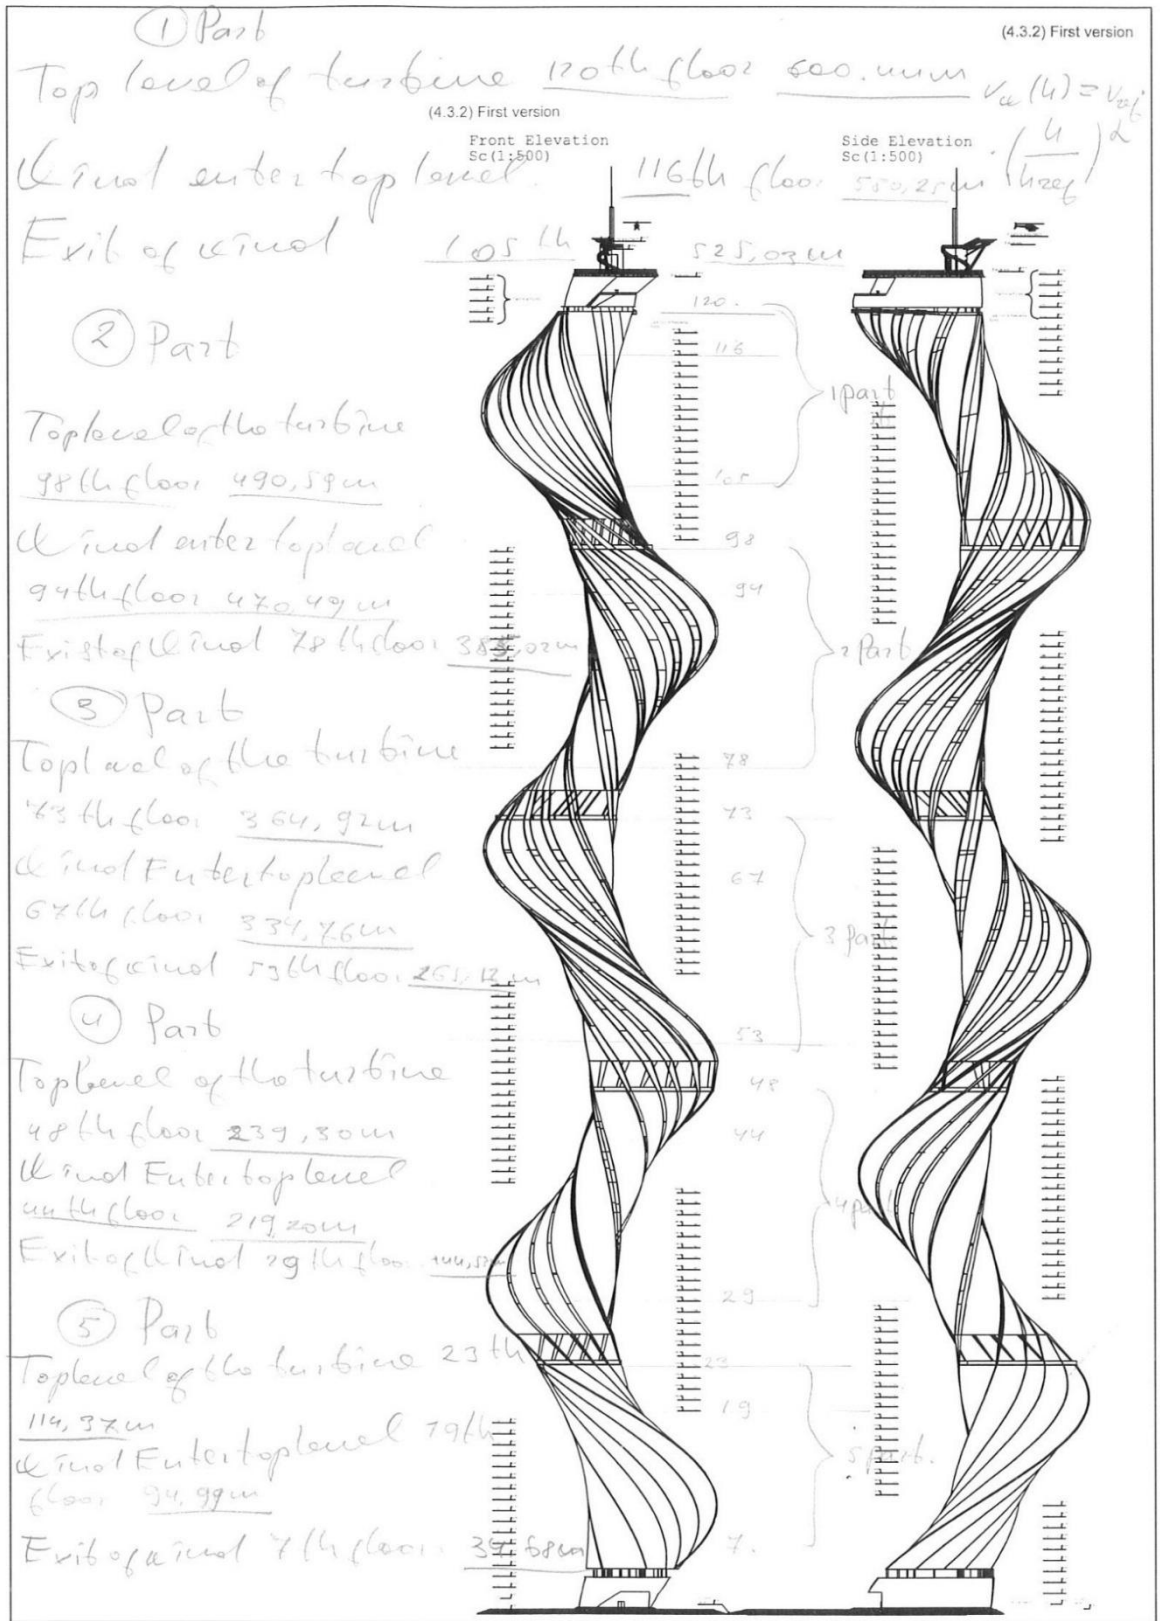 (4.3.2) First version
① Part
Top level of turbine 120th floor 600.
(4.3.2) First version
Front Elevation
Sc(1:500)
Side Elevation
Sc(1:500)
Wind enter top level. 116th floor 550,25m
Exit of wind 105th 525,03m
② Part
Top level of the turbine
98th floor 490,59m
Wind enter top level
94th floor 470,49m
Exist of Wind 78th floor
③ Part
Top level of the turbine
73th floor 364,92m
Wind Enter top level
67th floor 334,76m
Exit of wind 53th floor 265,12m
④ Part
Top level of the turbine
48th floor 239,30m
Wind Enter top level
44th floor 219,20m
Exit of Wind 29th floor
⑤ Part
Top level of the turbine 23th
114,37m
Wind Enter top level 19th
floor 94,99m
Exit of wind 7th floor
120.
116
1 part
105
98
94
2 Part
78
73
67
3 Part
53
48
44
4 part
29
23
19
5 part.
7.